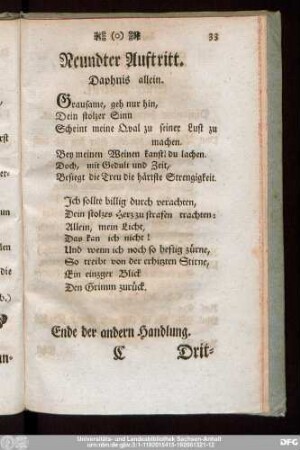 (o) 33
Neundter Aufftritt.
Daphnis allein.
Grausame, geh nur hin,
Dein stolzer Sinn
Scheint meine Qval zu seiner Lust zu
machen.
Bey meinen Weinen kanst du lachen.
Doch, mit Gedult und Zeit,
Besiegt die Treu die härtste Strengigkeit.
Ich sollte billig durch verachten,
Dein stolzes Herz zu strafen trachten:
Allein, mein Licht,
Das kan ich nicht!
Und wenn ich noch so hefftig zürne,
So treibt von der erhizten Stirne,
Ein einzger Blick
Den Grimm zurück.
Ende der andern Handlung.
C Drit-
Universitäts- und Landesbibliothek Sachsen-Anhalt
DFG